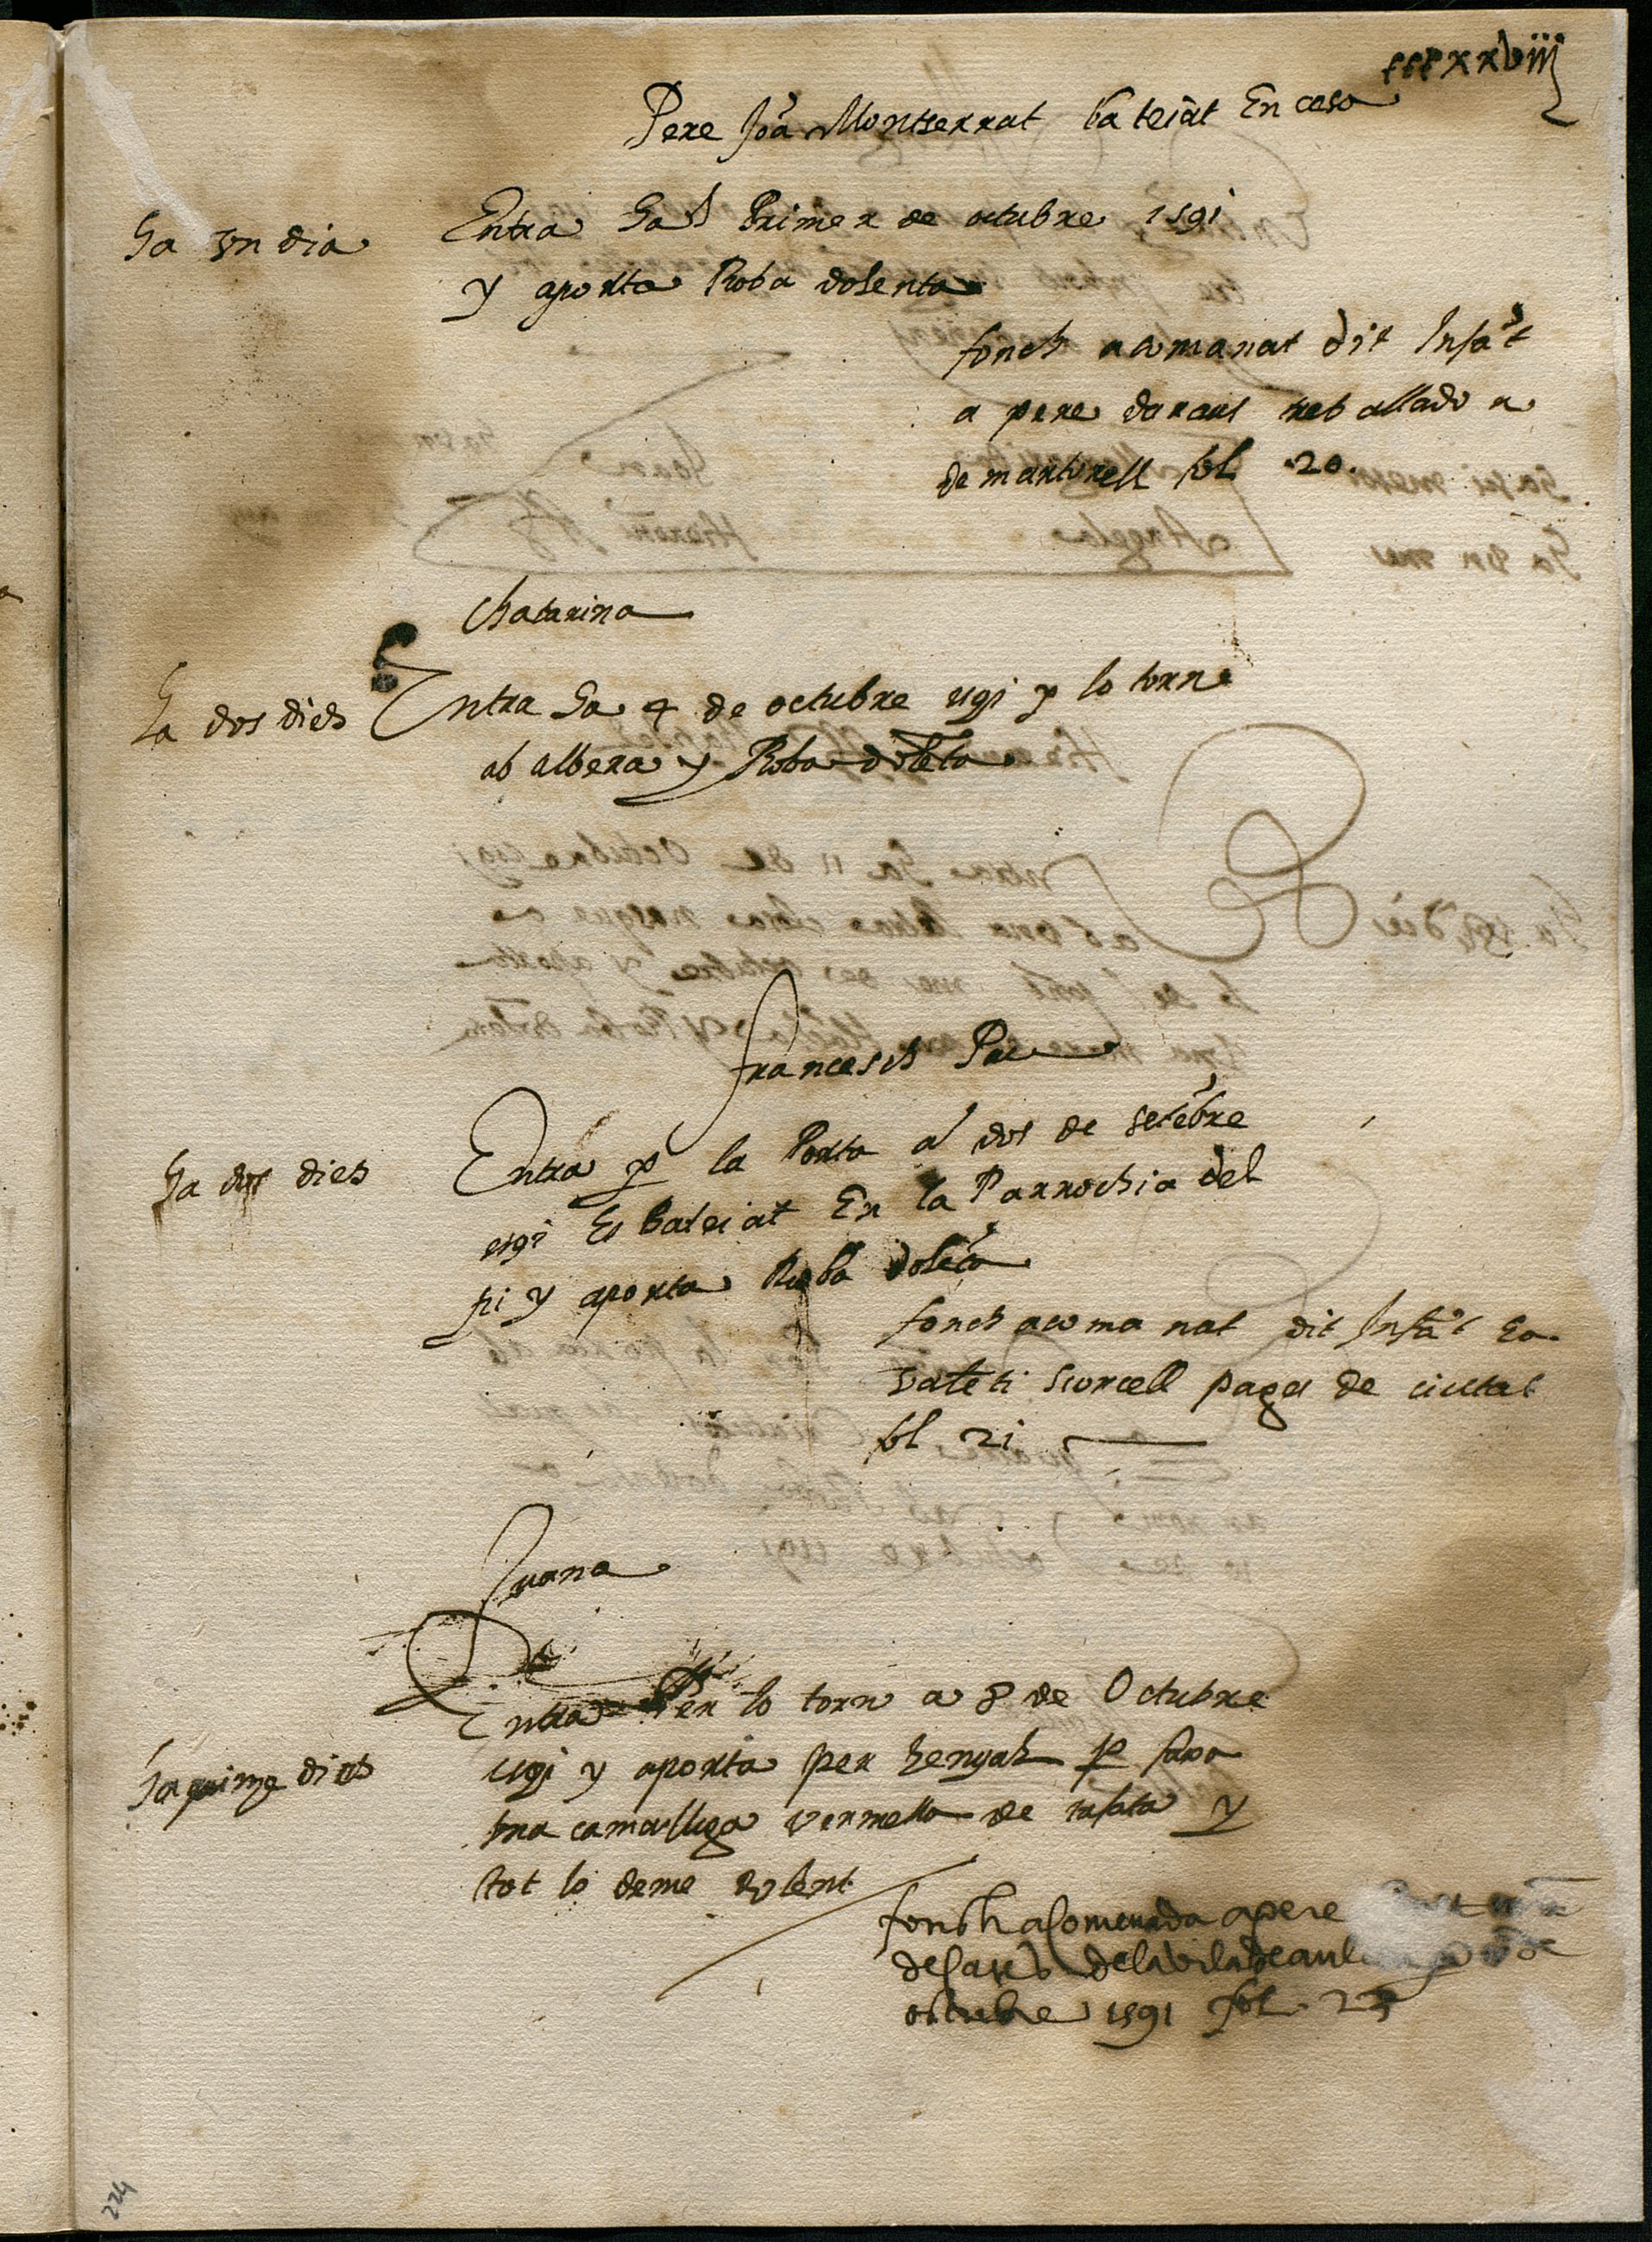 cccxxviiij
Pere Joã Montserrat bateiat En casa
ha vn dia
Entra ha Primer de octubre 1591
y aporta Roba dolenta
fonch acomanat dit Infãt
a pere daraus treballado r
de martorell fol 20.
Chatarina
ha dos dies
Entra ha 4 de octubre 1591 p lo torn
ab albera y Roba dolẽta
francesch Pau
ha dos dies
Entra p la Porta a dos de setẽbre
1591 Es bateiat En la Parrochia del
pi y aporta Roba dolẽta
fonch acoma nat dit Infãt ha
valẽti scorcell pages de ciutat
fol 21
Juana
Entra Per lo torn a 8 de Octubre
ha quinze dies
1591 y aporta per senyal p
vna camalliga vermella de tafata y
tot lo deme dolent
fonch acomenada a pere
de la vila de
octubre 1591 fol 23
224